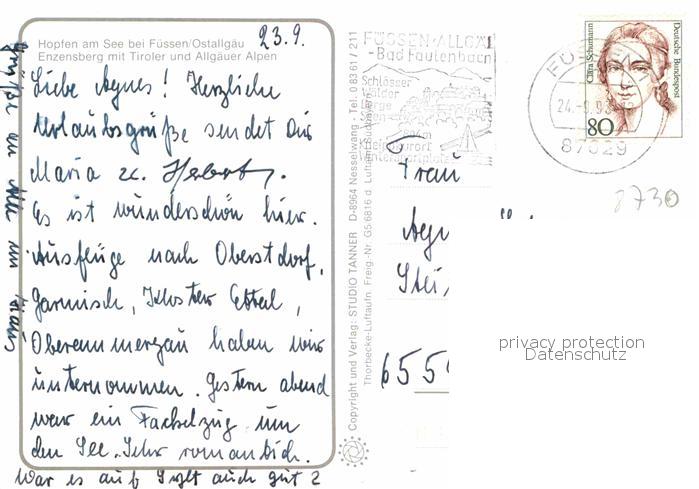 23.9.
Hopfen am See bei Füssen/Ostallgäu
Enzensberg mit Tiroler und Allgäuer Alpen
Liebe Agnes! Herzliche
Urlaubsgrüße sendet Dir
Maria u. Herbert.
Es ist wunderschön hier.
Ausflüge nach Oberstdorf,
Garmisch, Kloster Ettal,
Oberammergau haben wir
unternommen. Gestern abend
war ein Fackelzug um
den See. Sehr romantisch.
War es auf Sylt auch gut?
Grüße an Alle im Haus
Copyright und Verlag: STUDIO TANNER D-8964 Nesselwang · Tel. 0 83 61 / 211
Thorbecke-Luftaufn. Freig.-Nr. G5 6816 d. Luftamt Südbayern
FÜSSEN·ALLGÄU
-Bad Faulenbach
Schlösser
Wälder
Kneippkurort
Wintersportplatz
24.-9.93
87629
Clara Schumann
Deutsche Bundespost
80
8730
Frau
Agn
655
privacy protection
Datenschutz